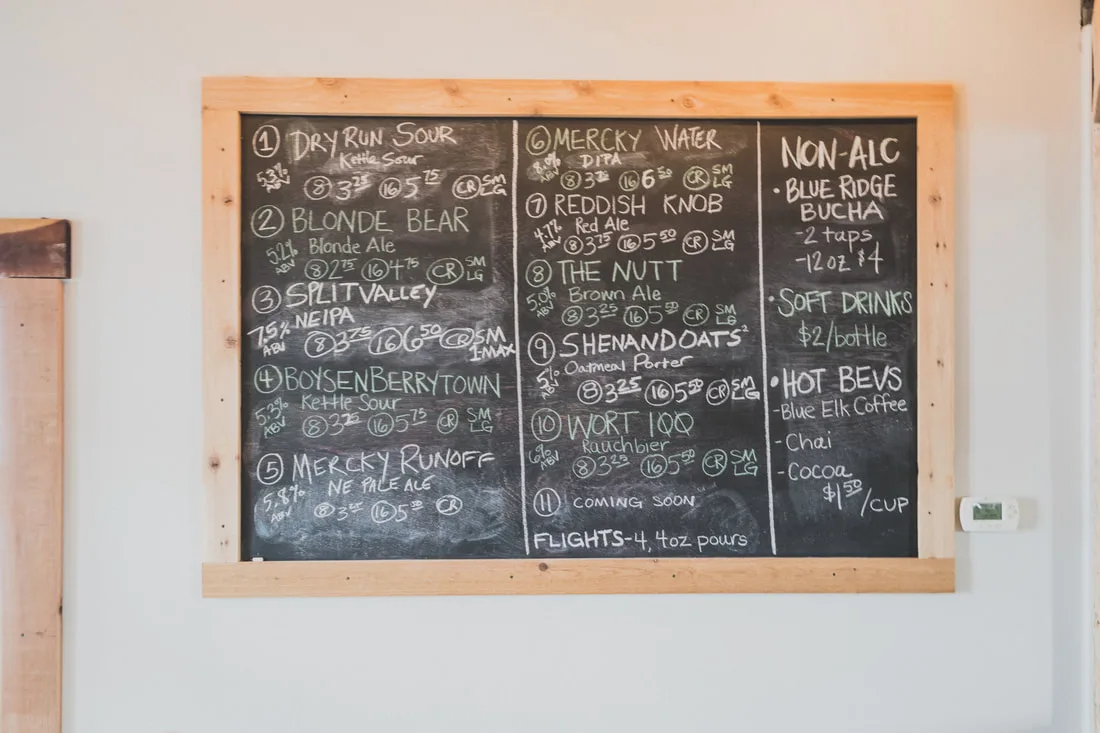 1 DRY RUN SOUR
Kettle Sour
5.3% ABV 8 3.25 16 5.75 CR SM LG
2 BLONDE BEAR
5.2% ABV Blonde Ale
8 2.75 16 4.75 CR SM LG
3 SPLIT VALLEY
NEIPA
7.5% ABV 8 3.75 16 6.50 CR SM 1 MAX
4 BOYSENBERRYTOWN
5.3% ABV Kettle Sour
8 3.25 16 5.75 CR SM LG
5 MERCKY RUNOFF
5.8% ABV NE PALE ALE
8 3 16 5 CR
6 MERCKY WATER
8.0% ABV DIPA
8 3 16 6.50 CR SM LG
7 REDDISH KNOB
4.7% ABV Red Ale
8 3.75 16 5.50 CR SM LG
8 THE NUTT
5.0% ABV Brown Ale
8 3.25 16 5.50 CR SM LG
9 SHENANDOATS²
5% ABV Oatmeal Porter
8 3.25 16 5.50 CR SM LG
10 WORT 100
6% ABV Rauchbier
8 3.25 16 5.50 CR SM LG
11 COMING SOON
FLIGHTS-4, 4oz pours
NON-ALC
• BLUE RIDGE
BUCHA
-2 taps
-12oz $4
• SOFT DRINKS
$2/bottle
• HOT BEVS
-Blue Elk Coffee
-Chai
-Cocoa
$1.50/CUP